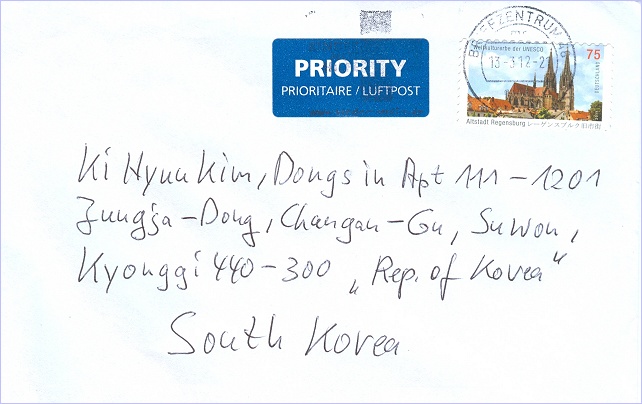 PRIORITY
PRIORITAIRE / LUFTPOST
BRIEFZENTRUM 48
13-3.12-2
Weltkulturerbe der UNESCO
75
DEUTSCHLAND
Altstadt Regensburg レーゲンスブルク旧市街
Ki Hyun Kim, Dongsin Apt 111-1201
Jungja-Dong, Changan-Gu, Suwon,
Kyonggi 440-300 „Rep. of Korea“
South Korea